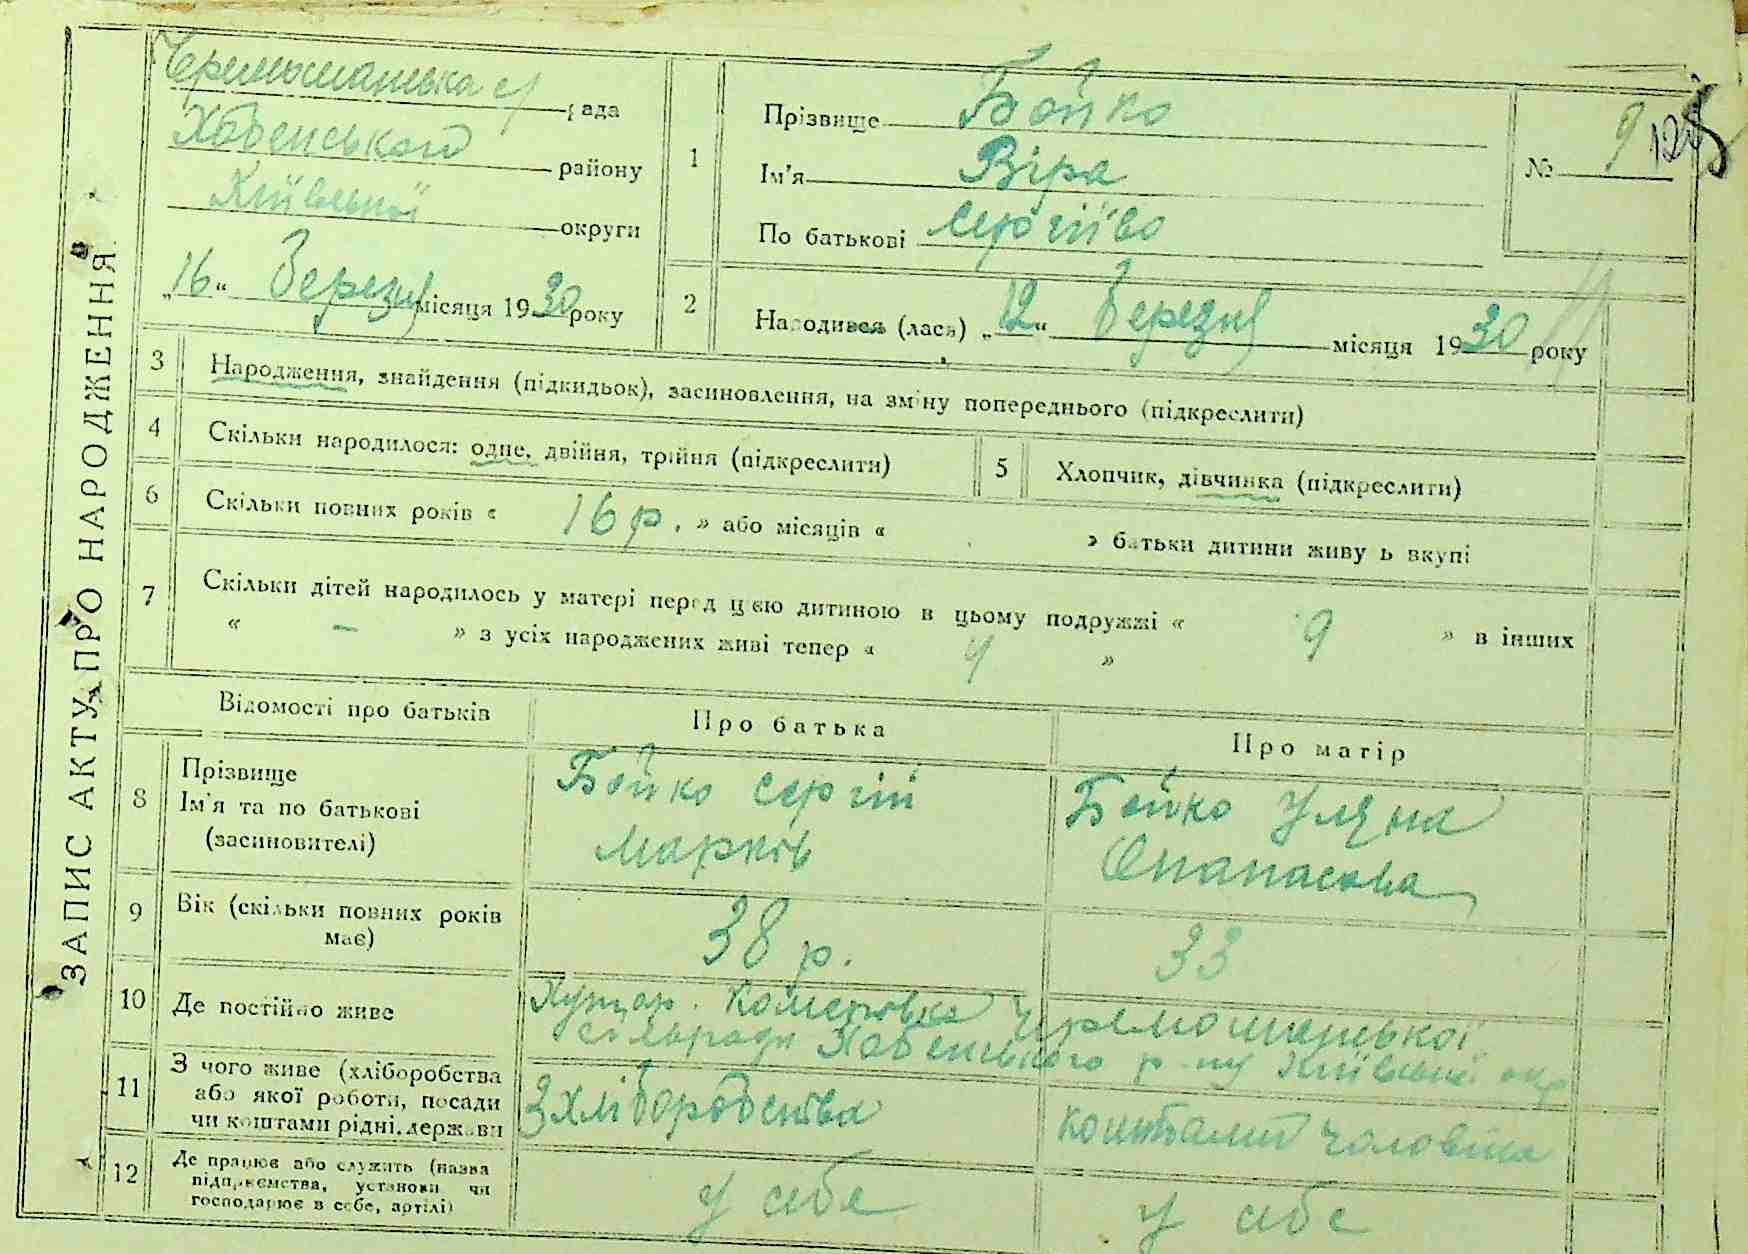 ЗАПИС АКТУ ПРО НАРОДЖЕННЯ
Черемошнянська с/рада
Хабенського району
Київської округи
„16“ Березня місяця 1930 року
1 Прізвище Бойко
Ім'я Віра
По батькові Сергіїва
№ 9
2 Народився (лася) „12“ березня місяця 1930 року
3 Народження, знайдення (підкидьок), засиновлення, на зміну попереднього (підкреслити)
4 Скільки народилося: одне, двійня, трійня (підкреслити) 5 Хлопчик, дівчинка (підкреслити)
6 Скільки повних років « 16 р. » або місяців « » батьки дитини живуть вкупі
7 Скільки дітей народилось у матері перед цією дитиною в цьому подружжі « 9 » в інших
« – » з усіх народжених живі тепер « 4 »
Відомості про батьків Про батька Про матір
8 Прізвище
Ім'я та по батькові
(засиновителі)
Бойко Сергій
Марків
Бойко Уляна
Опанасова
9 Вік (скільки повних років
має)
38 р. 33
10 Де постійно живе
Хутор
сільради Хабенського р-ну Київської окр
11 З чого живе (хліборобства
або якої роботи, посади
чи коштами рідні, держави
З хліборобства коштами чоловіка
12 Де працює або служить (назва
підприємства, установи чи
господарює в себе, артілі)
у себе у себе